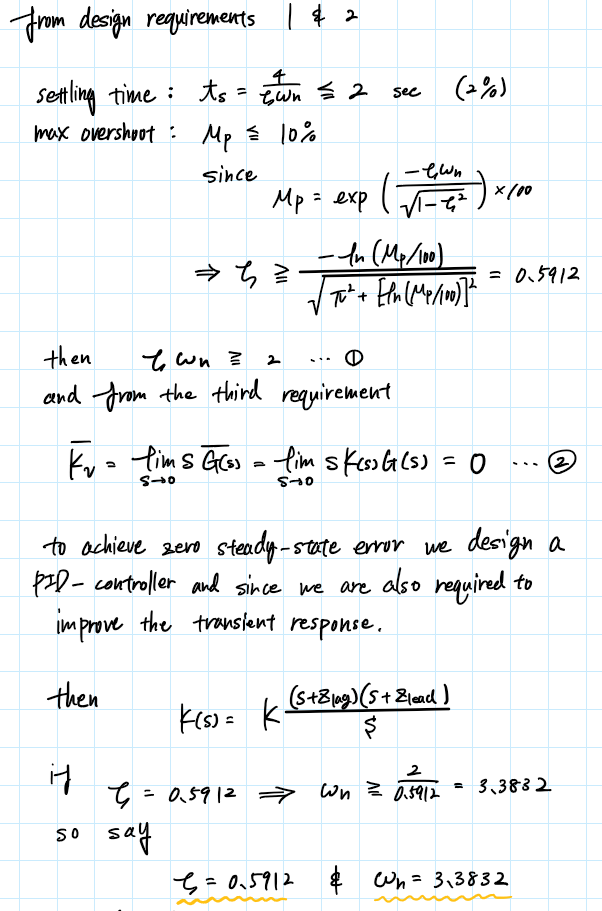 from design requirements 1 & 2
settling time : ts = 4/ζωn ≦ 2 sec (2%)
max overshoot : Mp ≦ 10%
since
Mp = exp ( -ζωn / √(1-ζ²) ) × 100
⇒ ζ ≧ -ln(Mp/100) / √(π² + [ln(Mp/100)]²) = 0.5912
then ζωn ≧ 2 ... ①
and from the third requirement
K̅v = lim s→0 s G̅(s) = lim s→0 s K(s)G(s) = 0 ... ②
to achieve zero steady-state error we design a
PID-controller and since we are also required to
improve the transient response.
then
K(s) = K (s+zlag)(s+zlead) / s
if ζ = 0.5912 ⇒ ωn ≧ 2/0.5912 = 3.3832
so say
ζ = 0.5912 & ωn = 3.3832